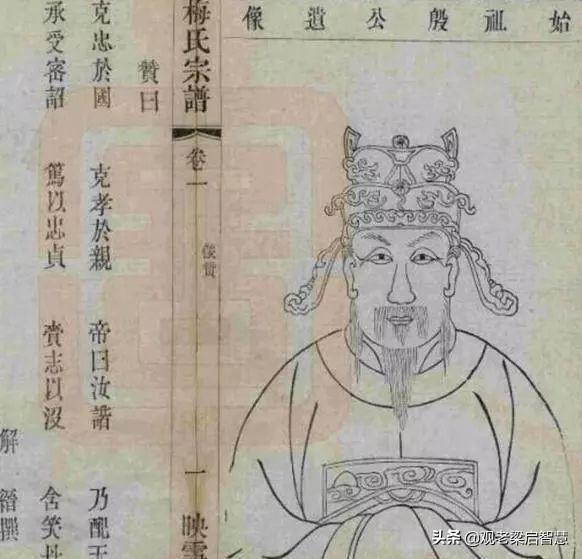 始祖殷公遺像
梅氏宗譜 卷一 像贊 一 映雪
贊曰
克忠於國 克孝於親 帝曰汝諧 乃配
承受密詔 篤以忠貞 賫志以沒 含笑
解縉撰
头条 @观老梁启智慧